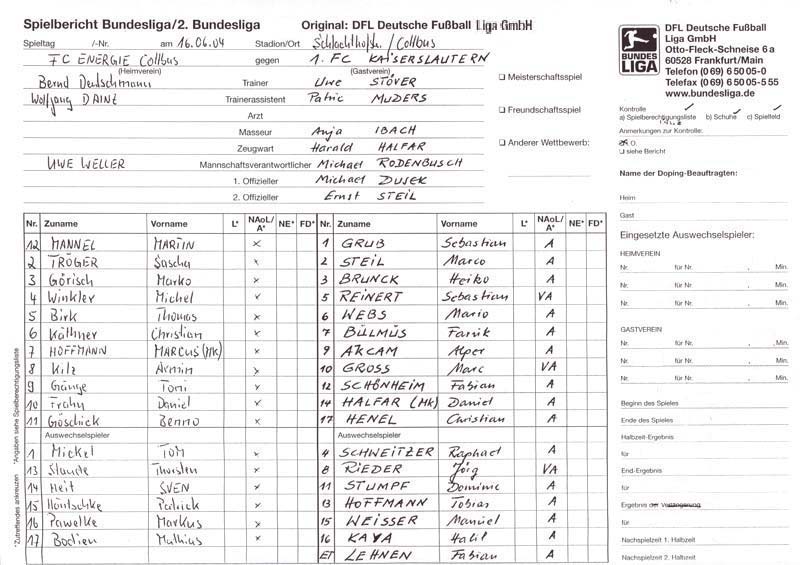 Spielbericht Bundesliga/2. Bundesliga Original: DFL Deutsche Fußball Liga GmbH
Spieltag /-Nr. am 16.06.04 Stadion/Ort / Cottbus
FC ENERGIE Cottbus gegen 1. FC KAISERSLAUTERN
(Heimverein) (Gastverein)
Bernd Deutschmann Trainer Uwe STÖVER
Wolfgang Trainerassistent Patric MUDERS
Arzt
Masseur Anja IBACH
Zeugwart Harald HALFAR
UWE WELLER Mannschaftsverantwortlicher Michael RODENBUSCH
1. Offizieller Michael DUSEK
2. Offizieller Ernst STEIL
☐ Meisterschaftsspiel
☐ Freundschaftsspiel
☐ Anderer Wettbewerb:
BUNDES LIGA
DFL Deutsche Fußball
Liga GmbH
Otto-Fleck-Schneise 6 a
60528 Frankfurt/Main
Telefon (0 69) 6 50 05-0
Telefax (0 69) 6 50 05-5 55
www.bundesliga.de
Kontrolle
a) Spielberechtigungsliste b) Schuhe c) Spielfeld
Anmerkungen zur Kontrolle:
O.
☐ siehe Bericht
Name der Doping-Beauftragten:
Heim
Gast
Nr. Zuname Vorname L* NAoL/A* NE* FD* Nr. Zuname Vorname L* NAoL/A* NE* FD*
12 MANNEL MARTIN x 1 GRUB Sebastian A
2 TRÖGER Sascha x 2 STEIL Marco A
3 Görisch Marko x 3 BRUNCK Heiko A
4 Winkler Michel x 5 REINERT Sebastian VA
5 Birk Thomas x 6 WEBS Mario A
6 Käthner Christian x 7 BÜLMÜS Fanik A
7 HOFFMANN MARCUS (MK) x 9 AKCAM Alper A
8 Kilz Armin x 10 GROSS Marc VA
9 Gänge Toni x 12 SCHÖNHEIM Fabian A
10 Frahn Daniel x 14 HALFAR (MK) Daniel A
11 Göschick Benno x 17 HENEL Christian A
Auswechselspieler Auswechselspieler
1 Mickel TOM x 4 SCHWEITZER Raphael A
13 Staude Thorsten x 8 RIEDER Jörg VA
14 Heit SVEN x 11 STUMPF Dominic A
15 Patrick x 13 HOFFMANN Tobias A
16 Pawelke Markus x 15 WEISSER Manuel A
17 Mathias x 16 KAYA Halil A
ET LEHNEN Fabian A
*Zutreffendes ankreuzen *Angaben siehe Spielberechtigungsliste
Eingesetzte Auswechselspieler:
HEIMVEREIN
Nr. für Nr. , Min.
Nr. für Nr. , Min.
Nr. für Nr. , Min.
GASTVEREIN
Nr. für Nr. , Min.
Nr. für Nr. , Min.
Nr. für Nr. , Min.
Beginn des Spieles
Ende des Spieles
Halbzeit-Ergebnis
für
End-Ergebnis
für
Ergebnis der Verlängerung
für
Nachspielzeit 1. Halbzeit
Nachspielzeit 2. Halbzeit